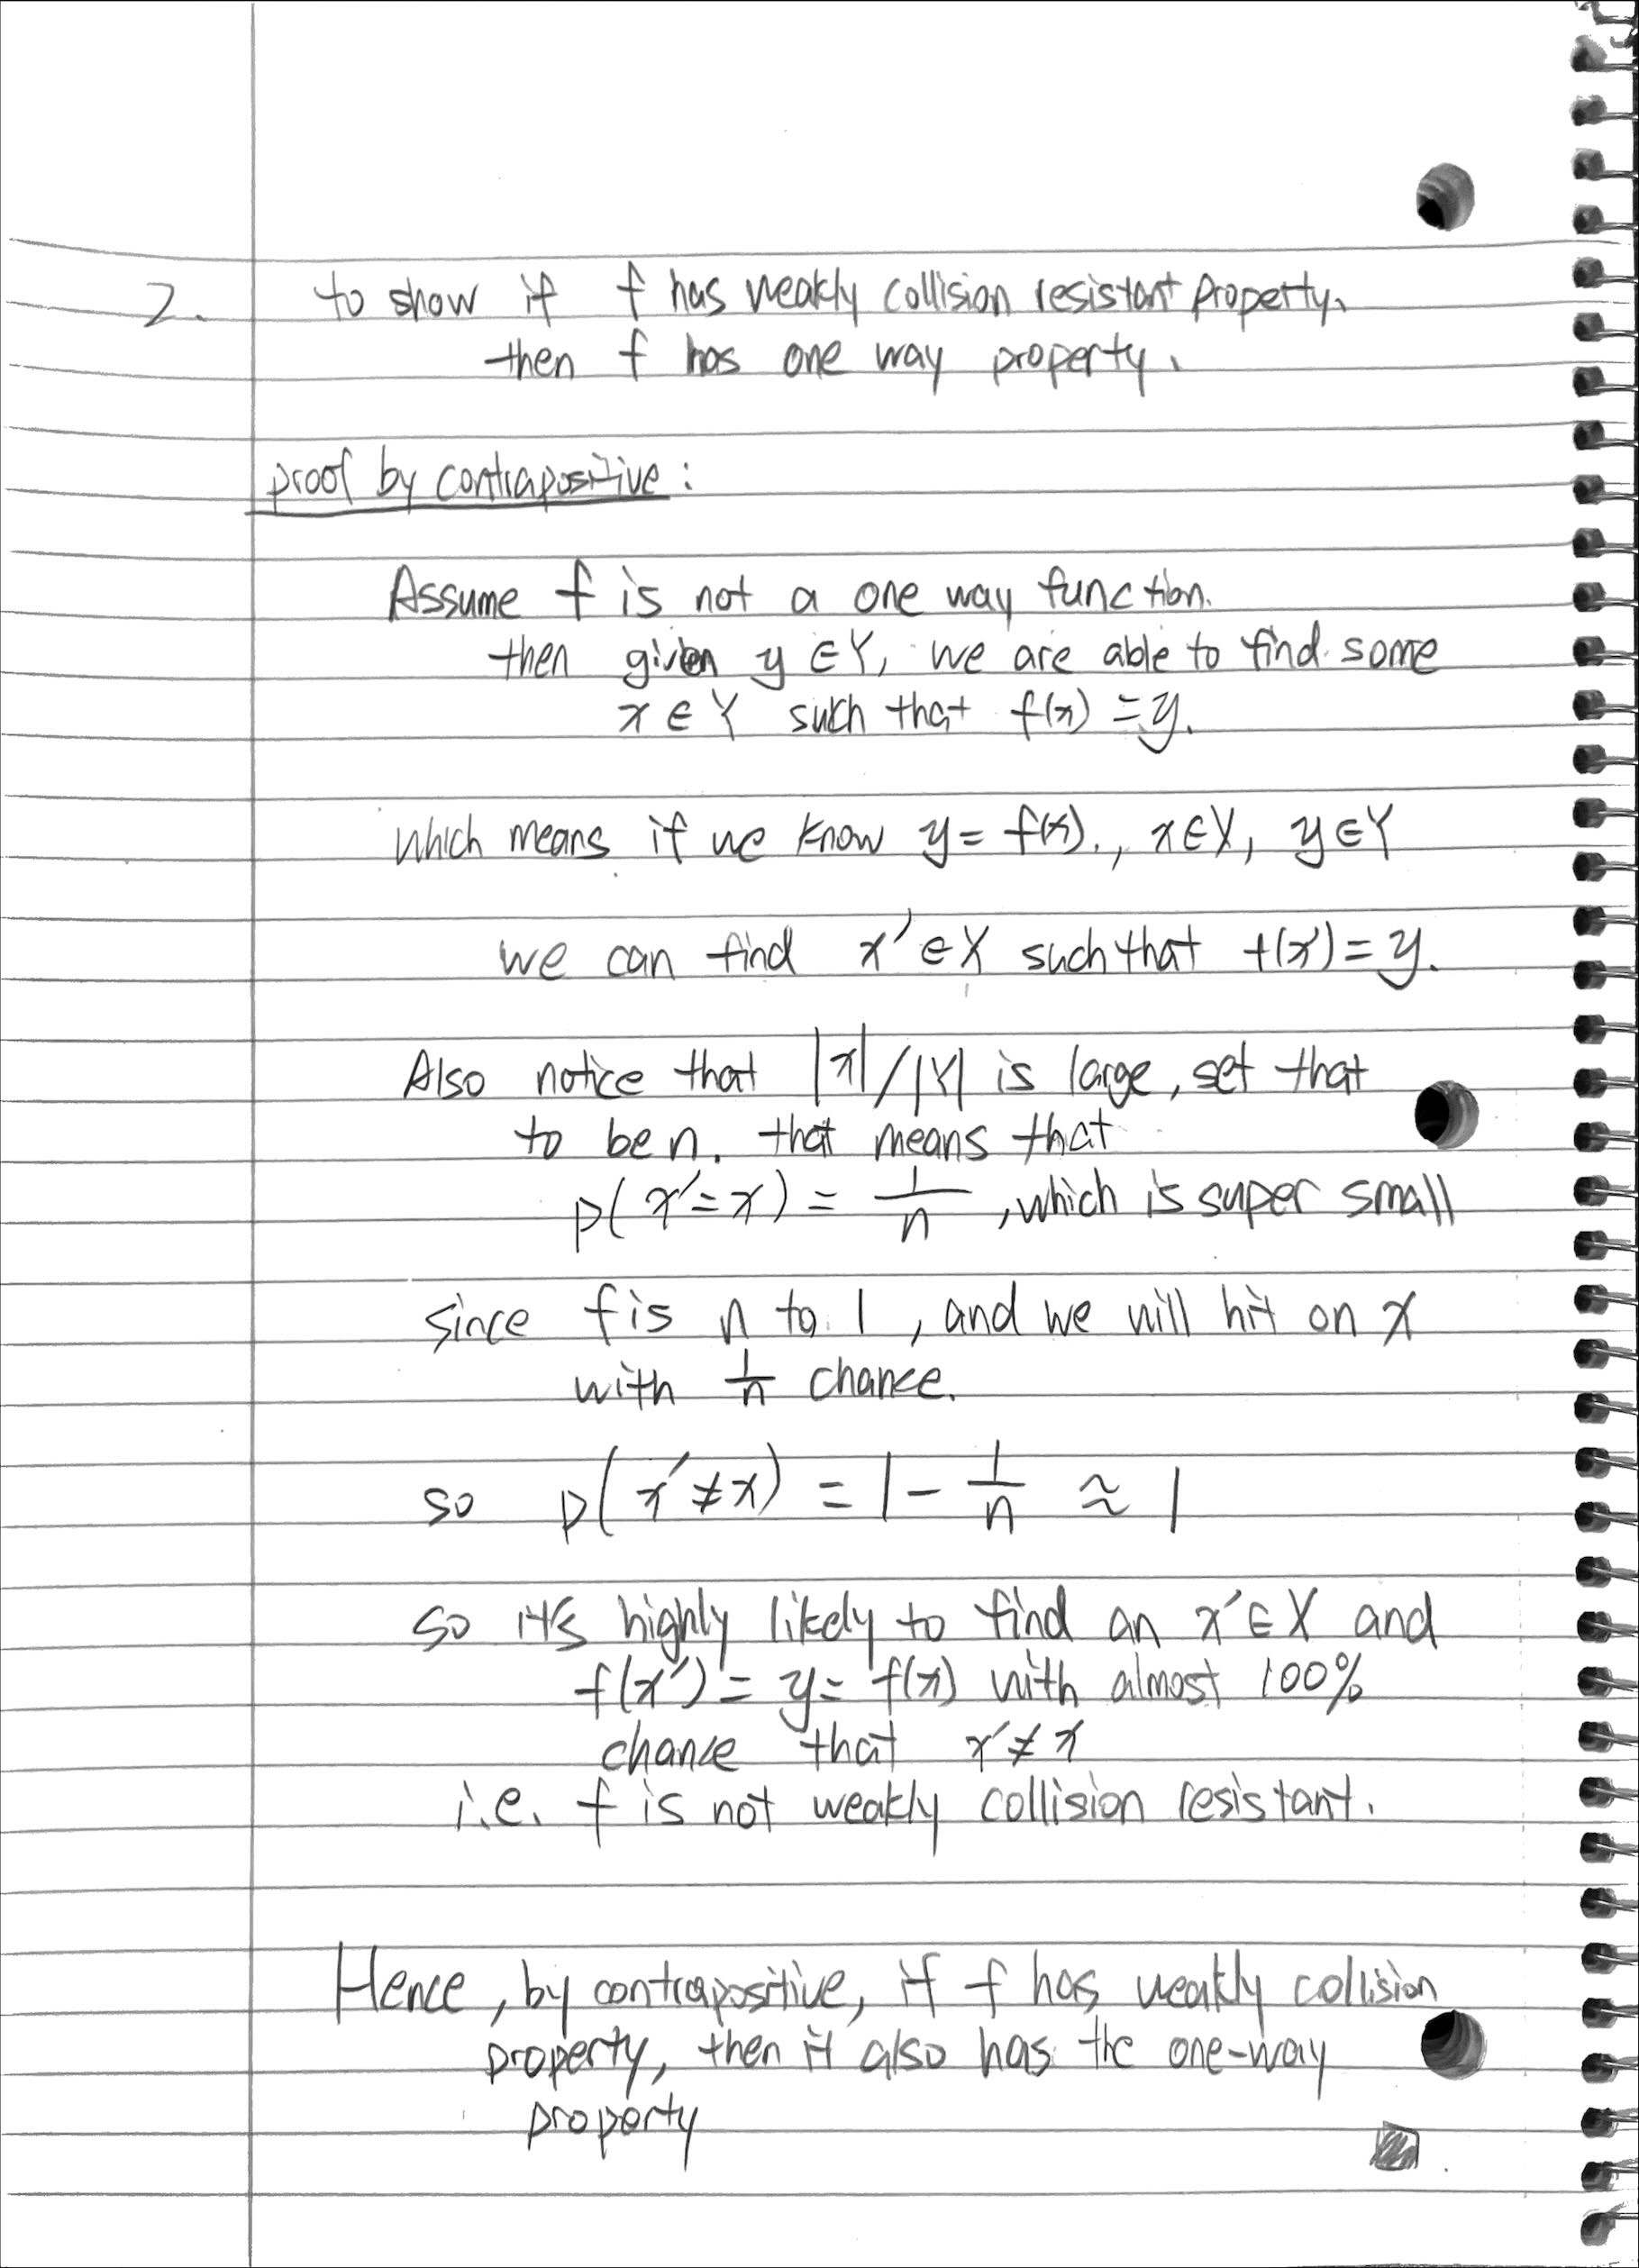 2. to show if f has weakly collision resistant property,
then f has one way property.
proof by contrapositive:
Assume f is not a one way function.
then given y ∈ Y, we are able to find some
x ∈ Y such that f(x) = y.
which means if we know y = f(x)., x ∈ X, y ∈ Y
we can find x' ∈ X such that f(x') = y.
Also notice that |x|/|Y| is large, set that
to be n. that means that
p(x' = x) = 1/n, which is super small
since f is n to 1, and we will hit on x
with 1/n chance.
so p(x' ≠ x) = 1 - 1/n ≈ 1
so it's highly likely to find an x' ∈ X and
f(x') = y = f(x) with almost 100%
chance that x' ≠ x
i.e. f is not weakly collision resistant.
Hence, by contrapositive, if f has weakly collision
property, then it also has the one-way
property